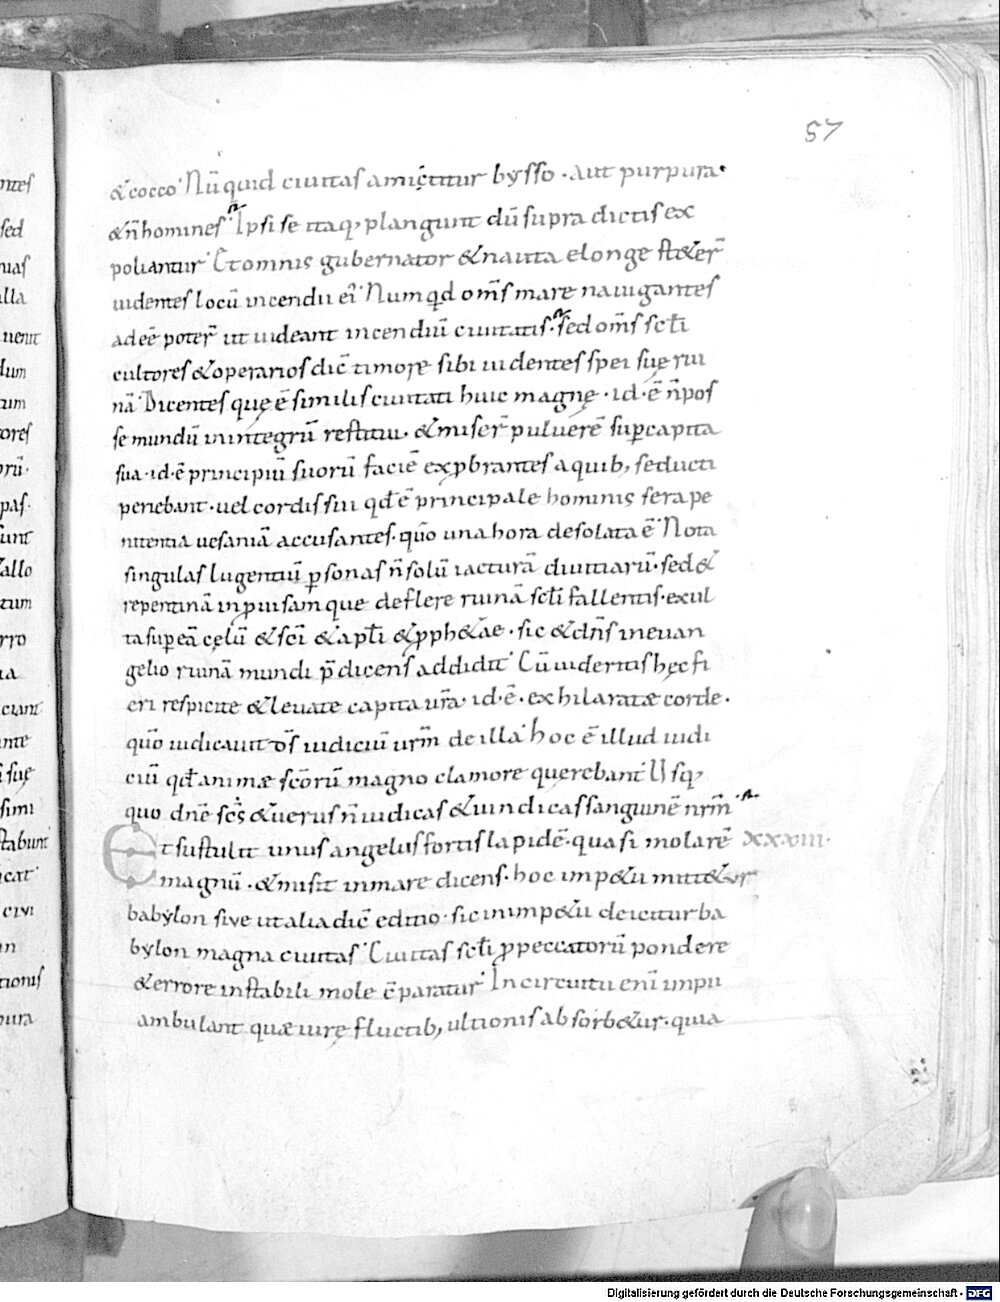 57
&cocco. Nūquid ciuitas amicitur bysso. aut purpura.
&n̄homines. Ipsi se itaq; plangunt dū supra dictis ex
poliantur. Et omnis gubernator & nauta elonge st&er̄
uidentes locū incendii ei'. Numqd om̄s mare nauigantes
adeē poter̄ ut uideant incendiū ciuitatis. sed om̄s scl̄i
cultores & operarios dic̄ timore sibi uidentes spei suę rui
nā. Dicentes quę ē similis ciuitati huic magnę. id. ē n̄pos
se mundū inintegrū restitui. & miser̄ puluerē sup̱ capita
sua. id. ē principiū suorū faciē exp̱brantes aquib; seducti
periebant. uel cordis sui qd̄ ē principale hominis sera pe
nitentia uesaniā accusantes. qūo una hora desolata ē. Nota
singulas lugentiū p̱sonas n̄ solū iacturā diuitiarū. sed &
repentinā inp̱uisamque deflere ruinā scl̄i fallentis. exul
ta sup̱ eā cęlū & sc̄i & apl̄i & p̱ph&ae. sic & dn̄s ineuan
gelio ruinā mundi p̄dicens addidit. Cū uideritis hęc fi
eri respicite & leuate capita ur̄a. id. ē. exhilaratæ corde.
qūo iudicauit d̄s iudiciū ur̄m de illa. hoc ē illud iudi
ciū qd̄ animæ sc̄orū magno clamore querebant. Usq;
quo dn̄e sc̄s & uerus n̄ iudicas & uindicas sanguinē nr̄m
Et sustulit unus angelus fortis lapidē. quasi molarē XXXIII.
magnū. & misit in mare dicens. hoc imp&u mitt&ur
babylon sive ut alia dic̄ editio. sic inimp&u deicitur ba
bylon magna ciuitas. Ciuitas scl̄i p̱ peccatorū pondere
& errore instabili mole c̄paratur. In circuitu enī impii
ambulant quæ iurę fluctib; ultionis absorb&ur. quia
Digitalisierung gefördert durch die Deutsche Forschungsgemeinschaft - DFG